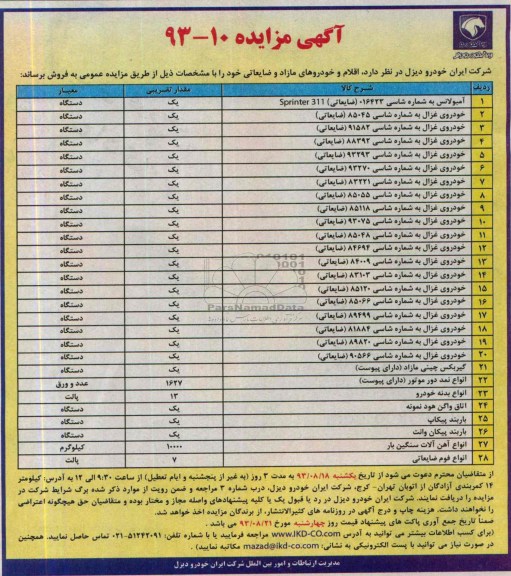 آگهی مزایده ۱۰-۹۳
شرکت ایران خودرو دیزل در نظر دارد، اقلام و خودروهای مازاد و ضایعاتی خود را با مشخصات ذیل از طریق مزایده عمومی به فروش برساند:
ردیف شرح کالا مقدار تقریبی معیار
۱ آمبولانس به شماره شاسی ۰۱۶۴۲۳ (ضایعاتی) Sprinter 311 یک دستگاه
۲ خودروی غزال به شماره شاسی ۸۵۰۴۵ (ضایعاتی) یک دستگاه
۳ خودروی غزال به شماره شاسی ۹۱۵۸۲ (ضایعاتی) یک دستگاه
۴ خودروی غزال به شماره شاسی ۸۸۳۹۲ (ضایعاتی) یک دستگاه
۵ خودروی غزال به شماره شاسی ۹۳۲۹۳ (ضایعاتی) یک دستگاه
۶ خودروی غزال به شماره شاسی ۹۲۲۷۰ (ضایعاتی) یک دستگاه
۷ خودروی غزال به شماره شاسی ۸۳۲۲۱ (ضایعاتی) یک دستگاه
۸ خودروی غزال به شماره شاسی ۸۵۰۵۵ (ضایعاتی) یک دستگاه
۹ خودروی غزال به شماره شاسی ۸۵۱۱۸ (ضایعاتی) یک دستگاه
۱۰ خودروی غزال به شماره شاسی ۹۳۰۷۵ (ضایعاتی) یک دستگاه
۱۱ خودروی غزال به شماره شاسی ۸۵۰۴۸ (ضایعاتی) یک دستگاه
۱۲ خودروی غزال به شماره شاسی ۸۴۶۹۴ (ضایعاتی) یک دستگاه
۱۳ خودروی غزال به شماره شاسی ۸۴۰۰۹ (ضایعاتی) یک دستگاه
۱۴ خودروی غزال به شماره شاسی ۸۳۱۰۳ (ضایعاتی) یک دستگاه
۱۵ خودروی غزال به شماره شاسی ۸۵۱۲۰ (ضایعاتی) یک دستگاه
۱۶ خودروی غزال به شماره شاسی ۸۵۰۶۶ (ضایعاتی) یک دستگاه
۱۷ خودروی غزال به شماره شاسی ۸۹۴۹۹ (ضایعاتی) یک دستگاه
۱۸ خودروی غزال به شماره شاسی ۸۱۸۸۴ (ضایعاتی) یک دستگاه
۱۹ خودروی غزال به شماره شاسی ۸۹۸۲۰ (ضایعاتی) یک دستگاه
۲۰ خودروی غزال به شماره شاسی ۹۰۵۶۶ (ضایعاتی) یک دستگاه
۲۱ گیربکس چینی مازاد (دارای پیوست) یک دستگاه
۲۲ انواع نمد دور موتور (دارای پیوست) ۱۶۲۷ عدد و ورق
۲۳ انواع بدنه خودرو ۱۳ پالت
۲۴ اتاق واگن هود نمونه یک دستگاه
۲۵ باربند پیکاپ یک دستگاه
۲۶ باربند پیکان وانت یک دستگاه
۲۷ انواع آهن آلات سنگین بار ۱۰۰۰۰ کیلوگرم
۲۸ انواع فوم ضایعاتی ۷ پالت
ParsNamadData
از متقاضیان محترم دعوت می شود از تاریخ یکشنبه ۹۳/۰۸/۱۸ به مدت ۳ روز (به غیر از پنجشنبه و ایام تعطیل) از ساعت ۹:۳۰ الی ۱۲ به آدرس: کیلومتر
۱۴ کمربندی آزادگان از اتوبان تهران- کرج، شرکت ایران خودرو دیزل، درب شماره ۳ مراجعه و ضمن رویت از موارد ذکر شده برگ شرایط شرکت در
مزایده را دریافت نمایند. شرکت ایران خودرو دیزل در رد یا قبول یک یا کلیه پیشنهادهای واصله مجاز و مختار بوده و متقاضیان حق هیچگونه اعتراضی
را نخواهند داشت. هزینه چاپ و درج آگهی در روزنامه های کثیرالانتشار، از برندگان مزایده اخذ خواهد شد.
ضمناً تاریخ جمع آوری پاکت های پیشنهاد قیمت روز چهارشنبه مورخ ۹۳/۰۸/۲۱ می باشد.
(برای کسب اطلاعات بیشتر می توانید به آدرس www.IKD-CO.com مراجعه فرمایید یا با شماره تلفن: ۵۱۲۴۲۰۹۱-۰۲۱ تماس حاصل نمایید. همچنین
در صورت نیاز می توانید با پست الکترونیکی به نشانی: mazad@ikd-co.com مکاتبه نمایید).
مدیریت ارتباطات و امور بین الملل شرکت ایران خودرو دیزل